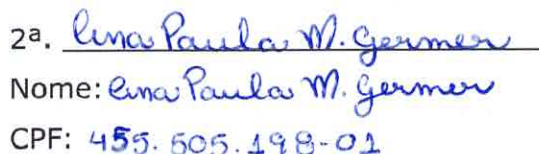 2ª. Ana Paula M. Germer
Nome: Ana Paula M. Germer
CPF: 455.505.198-01